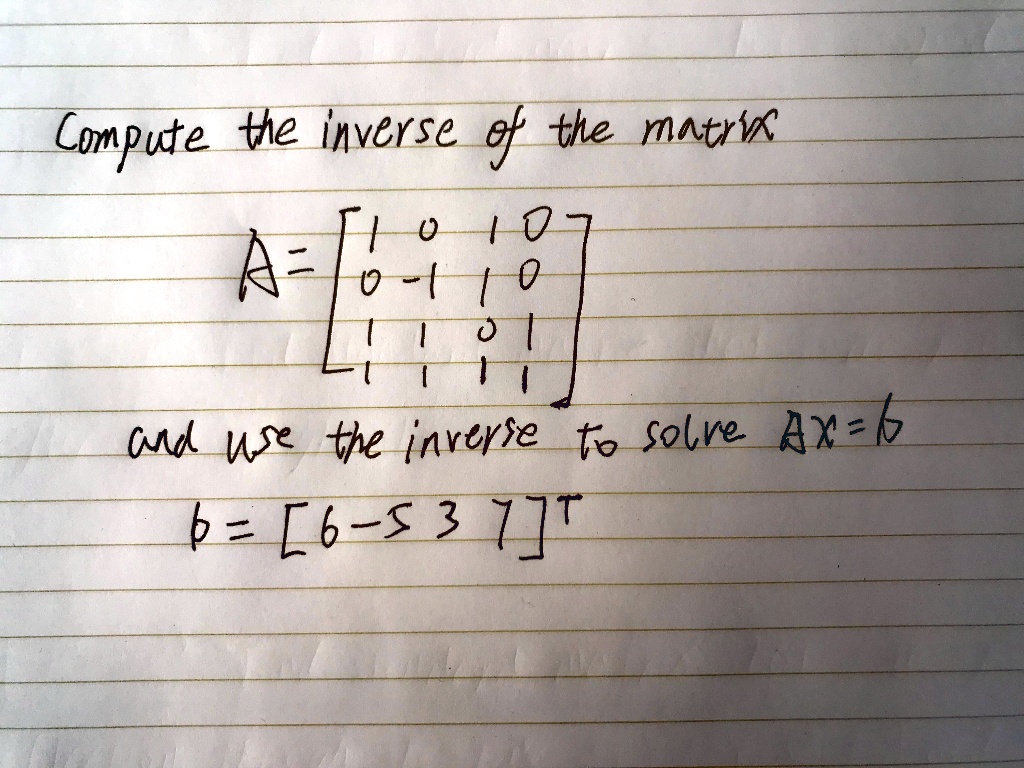 Compute the inverse of the matrix
A = [1 0 1 0
0 -1 1 0
1 1 0 1
1 1 1 1]
and use the inverse to solve AX = b
b = [6 -5 3 7]ᵀ